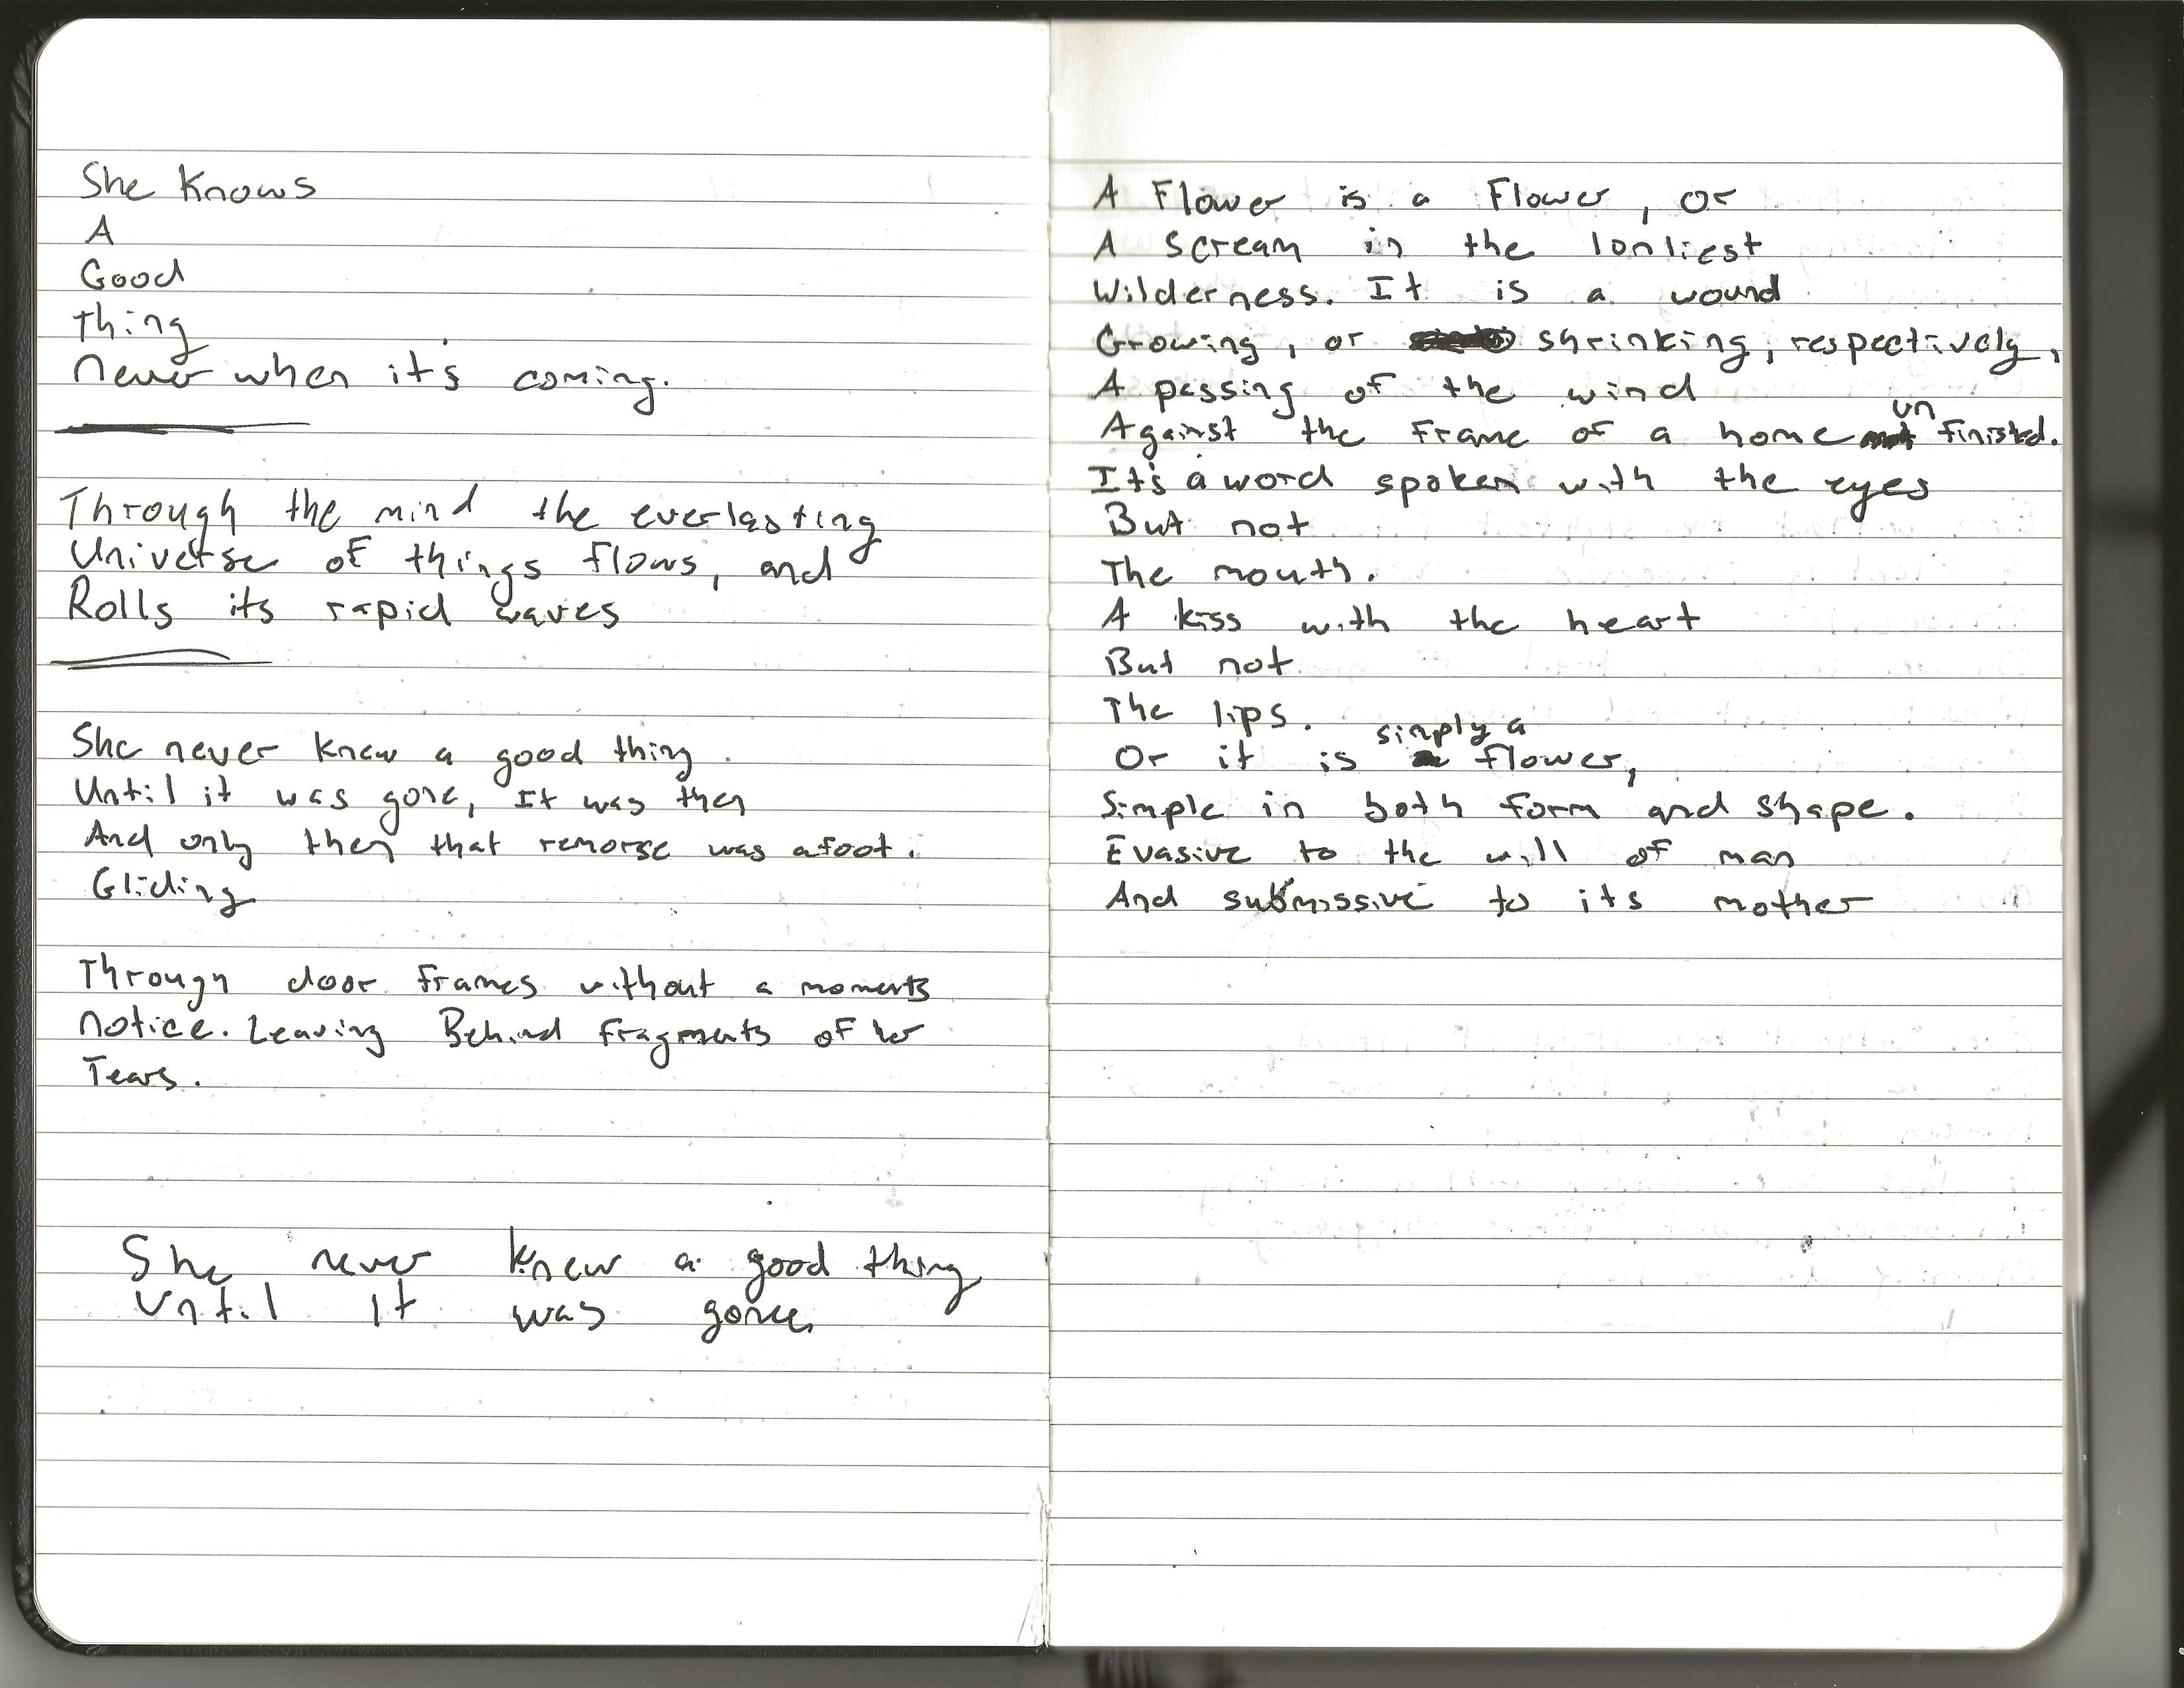 She Knows
A
Good
thing
never when it's coming.
Through the mind the everlasting
Universe of things flows, and
Rolls its rapid waves
She never knew a good thing
Until it was gone, It was then
And only then that remorse was afoot.
Gliding
Through door frames without a moments
notice. Leaving Behind fragments of her
Tears.
She never knew a good thing
until it was gone
A Flower is a Flower, or
A scream in the lonliest
Wilderness. It is a wound
Growing, or shrinking, respectively,
A passing of the wind
Against the frame of a home unfinished.
It's a word spoken with the eyes
But not
The mouth.
A kiss with the heart
But not
The lips.
Or it is simply a flower,
Simple in both form and shape.
Evasive to the will of man
And submissive to its mother